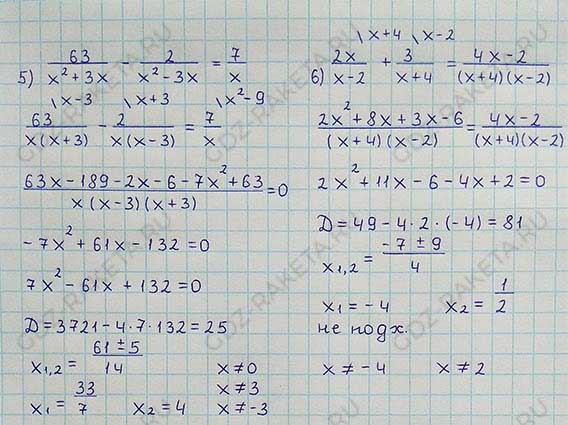 5) 63/(x²+3x) - 2/(x²-3x) = 7/x
\x-3 \x+3 \x²-9
63/(x(x+3)) - 2/(x(x-3)) = 7/x
(63x-189-2x-6-7x²+63)/(x(x-3)(x+3)) =0
-7x²+61x-132=0
7x²-61x+132=0
D=3721-4·7·132=25
x₁,₂ = (61±5)/14 x≠0
x≠3
x₁ = 33/7 x₂ = 4 x≠-3
\x+4 \x-2
6) 2x/(x-2) + 3/(x+4) = (4x-2)/((x+4)(x-2))
(2x²+8x+3x-6)/((x+4)(x-2)) = (4x-2)/((x+4)(x-2))
2x²+11x-6-4x+2=0
D=49-4·2·(-4)=81
x₁,₂ = (-7±9)/4
x₁=-4 x₂= 1/2
не подх.
x≠-4 x≠2
GDZ-RAKETA.RU